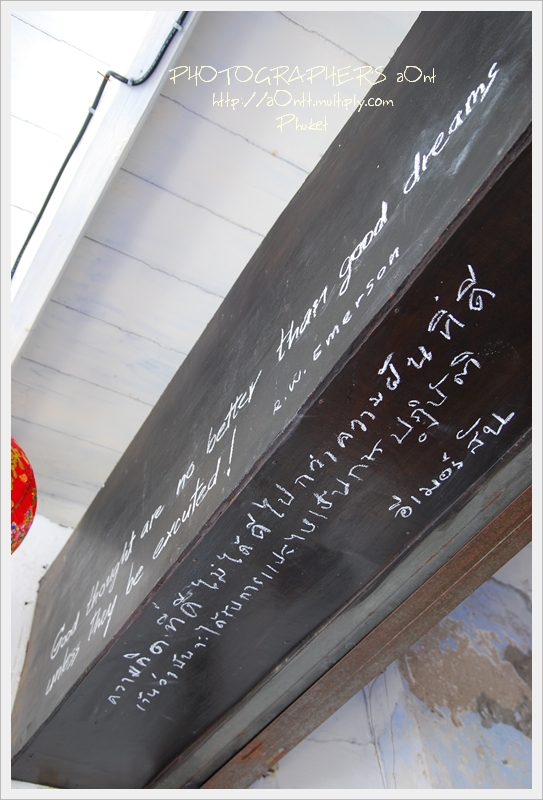 PHOTOGRAPHERS aOnt
http://aOntt.multiply.com
Phuket
Good thought are no better than good dreams
unless they be excuted!
R.W. Emerson
ความคิดที่ดี ไม่ได้ดีไปกว่าความฝันที่ดี
เว้นว่ามันจะได้รับการแปรไปเป็นการปฏิบัติ
อีเมอร์สัน